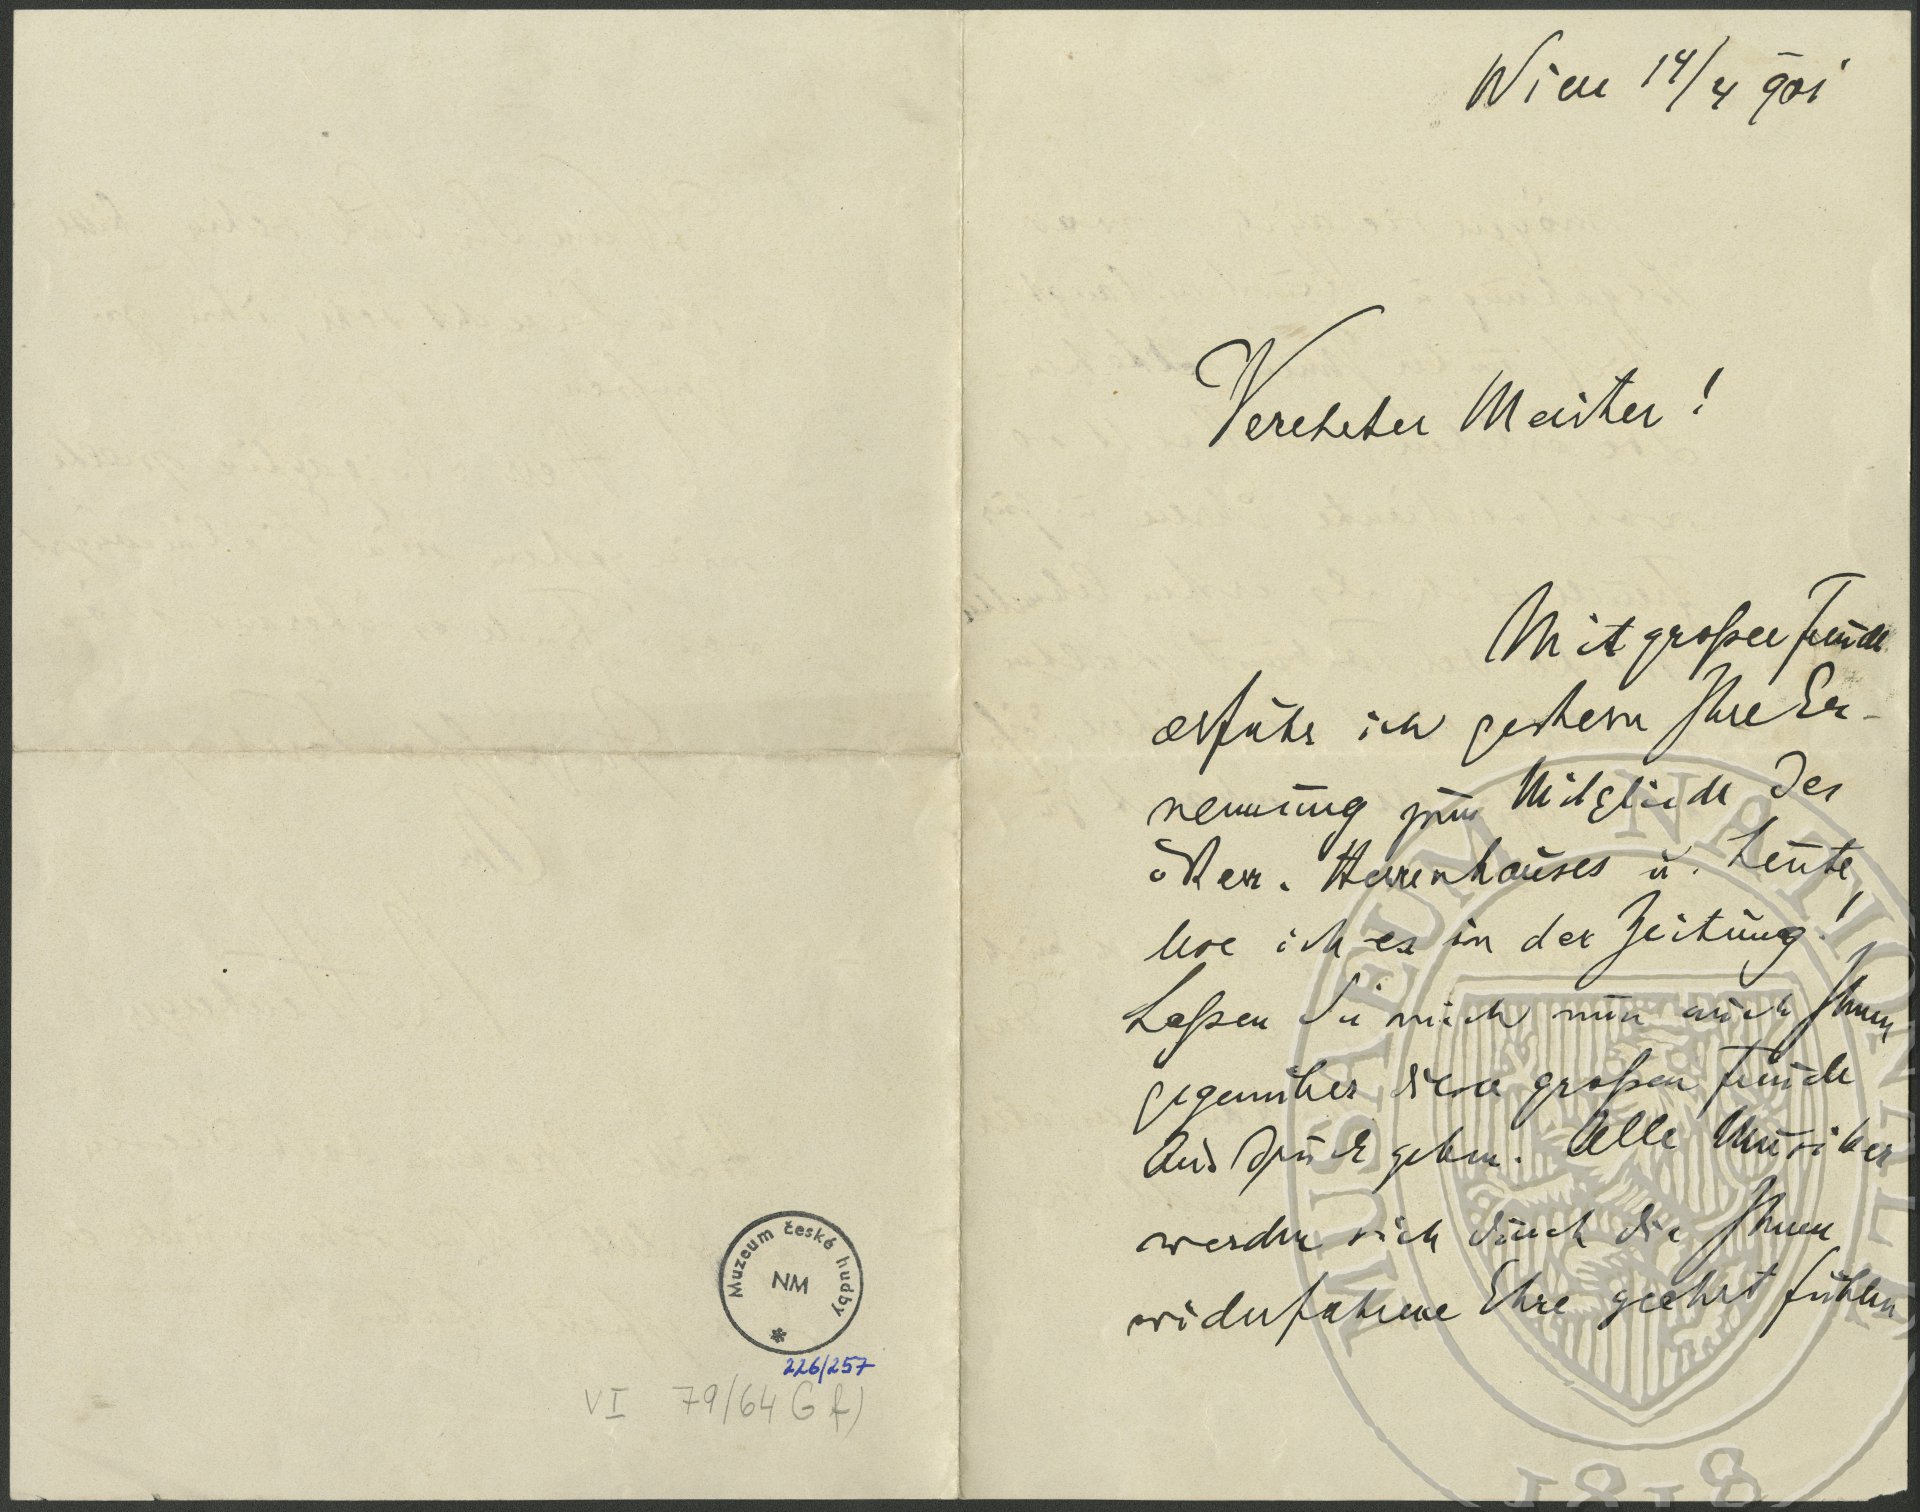 Wien 14/4 901
Verehrter Meister!
Mit großer Freude
erfuhr ich gestern Ihre Er-
nennung zum Mitgliede des
österr. Herrenhauses u. heute,
lese ich es in der Zeitung!
Laßen Sie mich nun auch Ihnen
gegenüber diese großen Freude
Ausdruck geben. Alle Musiker
werden sich durch die Ihnen
widerfahrene Ehre geehrt fühlen
Muzeum české hudby
NM
226/257
VI 79/64 G f)
MUSAEUM NATIONALE
1818